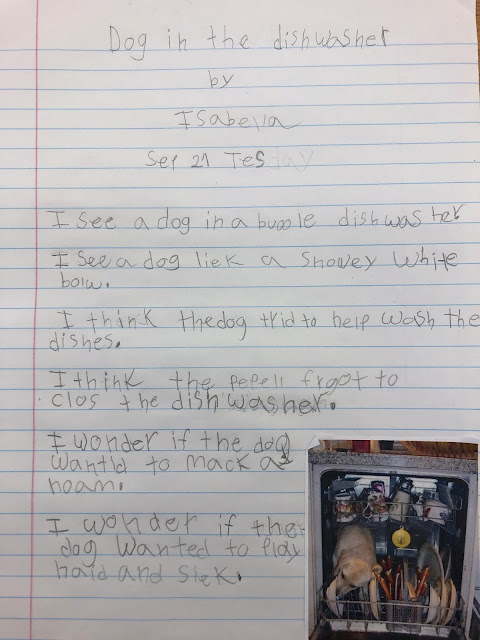 Dog in the dishwasher
by
ISabella
Sep 21 Tesday
I See a dog in a buble dishwasher
I See a dog liek a Snowey White
bolw.
I think thedog trid to help wash the
dishes.
I think the pepell frgot to
clos the dishwasher.
I wonder if the dog
wantid to mack a
hoam.
I wonder if the
dog wanted to play
haid and Siek.